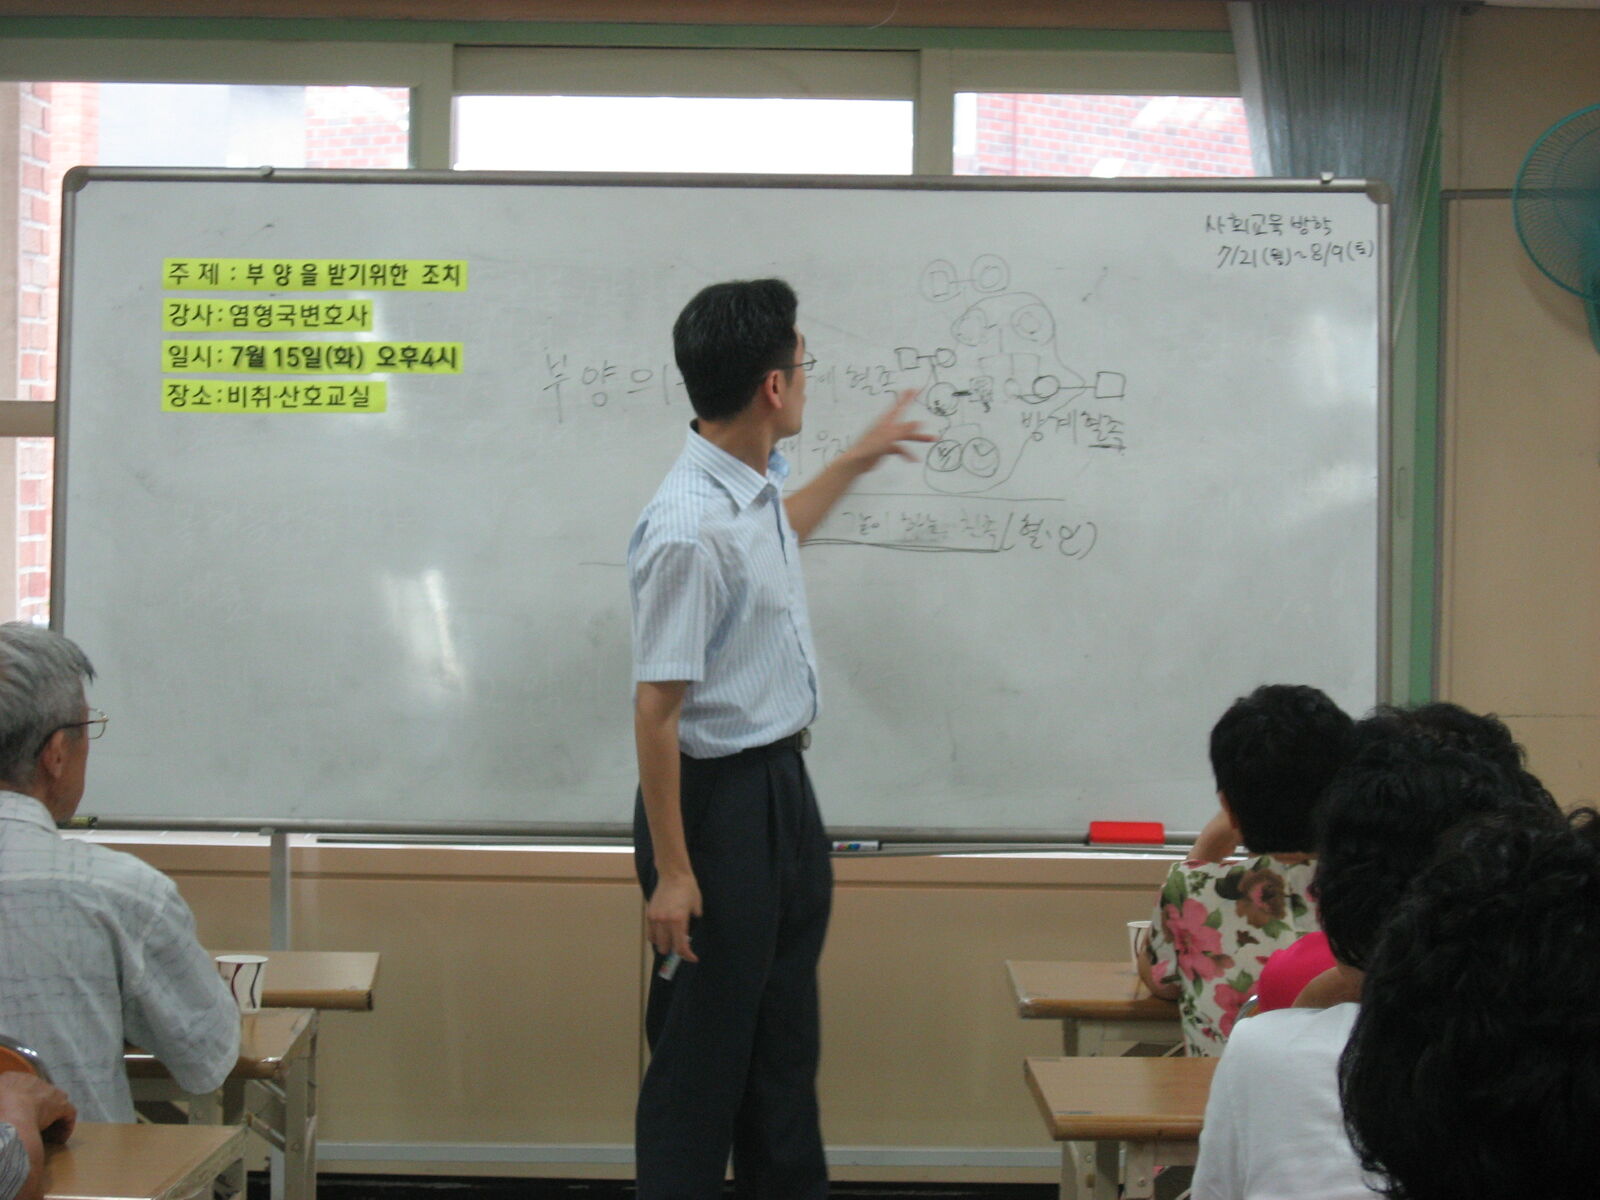 주 제 : 부 양 을 받기위한 조치
강사 : 염형국변호사
일시 : 7월 15일(화) 오후4시
장소 : 비취·산호교실
사회교육 방학
7/21(월)~8/9(토)
부양의
혈족
방계혈족
같이 하는 친족(혈·인)